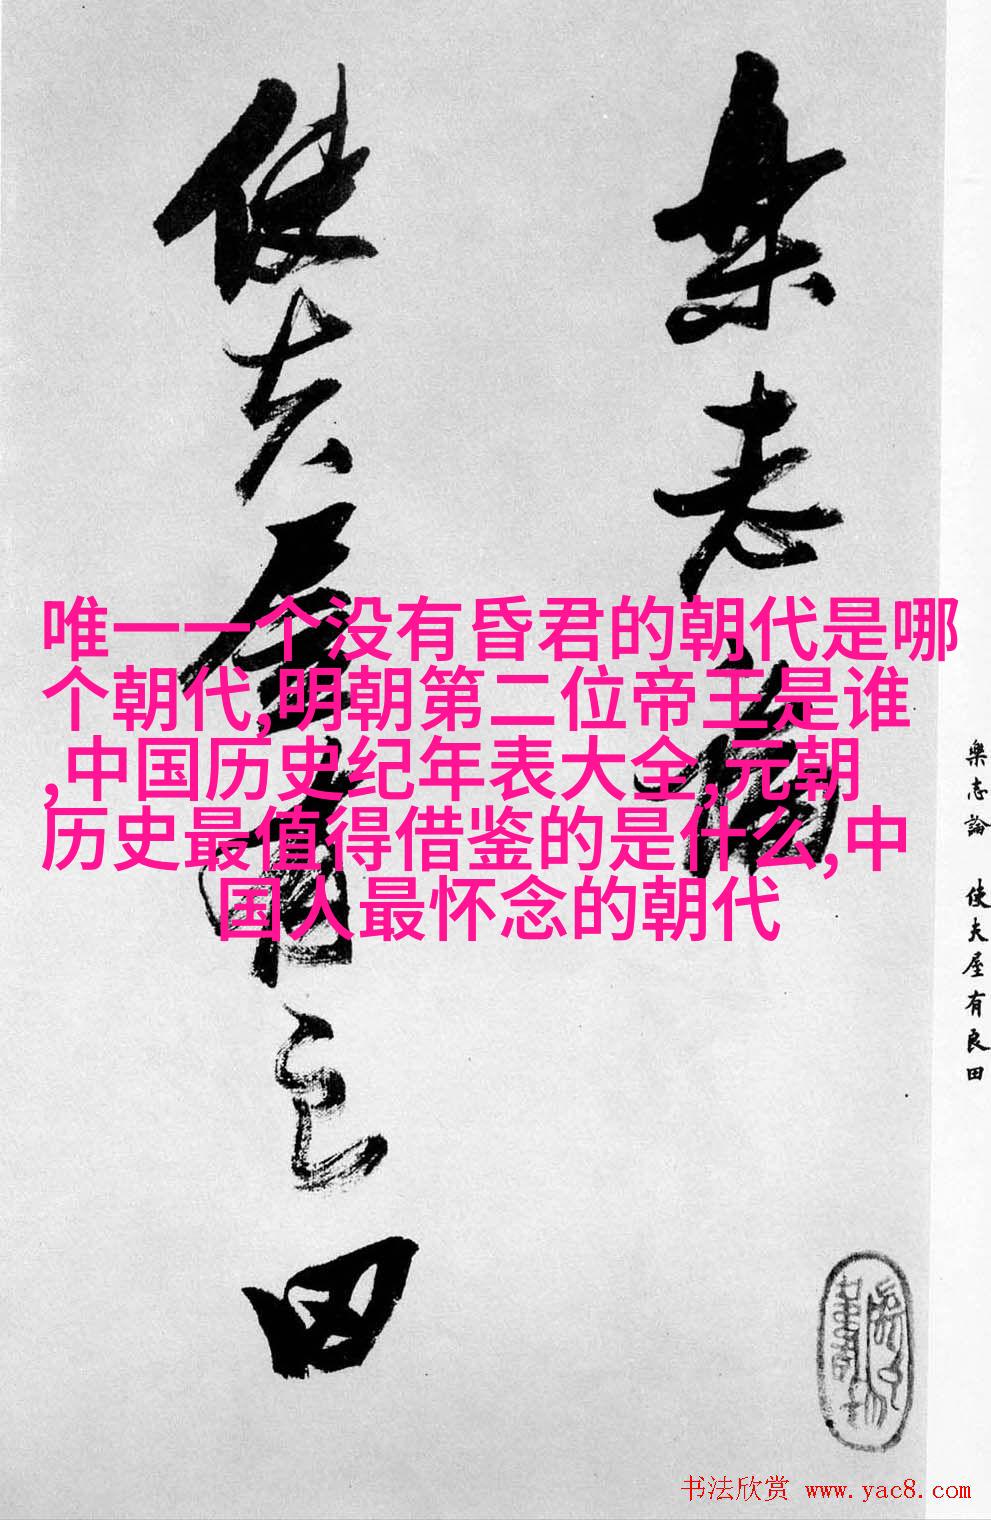 樂志論
使夫屋有良田
唯一一个没有昏君的朝代是哪
个朝代,明朝第二位帝王是谁
,中国历史纪年表大全,元朝
历史最值得借鉴的是什么,中
国人最怀念的朝代
樂志論 使夫屋有良田
书法欣赏 www.yac8.com